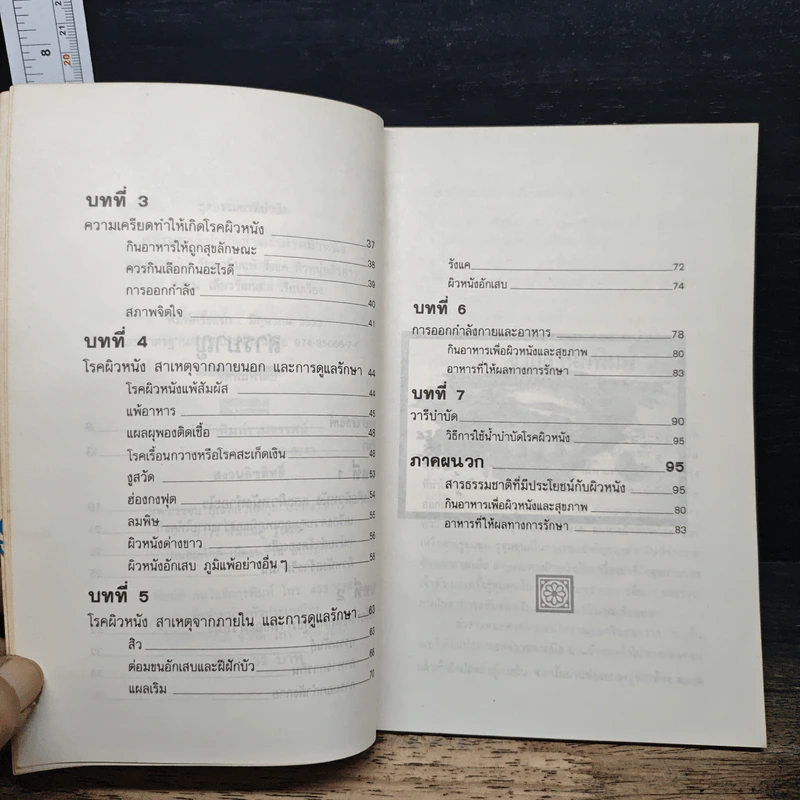 8
21
20
บทที่ 3
ความเครียดทำให้เกิดโรคผิวหนัง 37
กินอาหารให้ถูกสุขลักษณะ 38
ควรกินเลือกกินอะไรดี 39
การออกกำลัง 40
สภาพจิตใจ 41
บทที่ 4
โรคผิวหนัง สาเหตุจากภายนอก และการดูแลรักษา 44
โรคผิวหนังแพ้สัมผัส 44
แพ้อาหาร 45
แผลผุพองติดเชื้อ 48
โรคเรื้อนกวางหรือโรคสะเก็ดเงิน 48
งูสวัด 53
ฮ่องกงฟุต 54
ลมพิษ 55
ผิวหนังด่างขาว 58
ผิวหนังอักเสบ ภูมิแพ้อย่างอื่น ๆ 58
บทที่ 5
โรคผิวหนัง สาเหตุจากภายใน และการดูแลรักษา 63
สิว 63
ต่อมขนอักเสบและฝีฝักบัว 68
แผลเริม 70
รังแค 72
ผิวหนังอักเสบ 74
บทที่ 6
การออกกำลังกายและอาหาร 78
กินอาหารเพื่อผิวหนังและสุขภาพ 80
อาหารที่ให้ผลทางการรักษา 83
บทที่ 7
วารีบำบัด 90
วิธีการใช้น้ำบำบัดโรคผิวหนัง 95
ภาคผนวก 95
สารธรรมชาติที่มีประโยชน์กับผิวหนัง 95
กินอาหารเพื่อผิวหนังและสุขภาพ 80
อาหารที่ให้ผลทางการรักษา 83